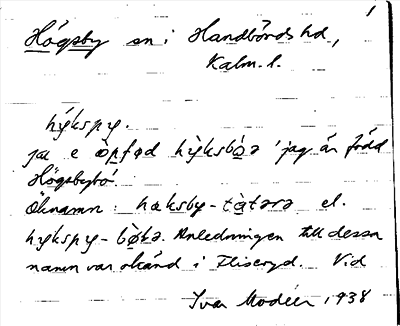 1
Högsby sn i Handbörds hd,
Kalm. l.
hýkspy.
ja e òpfød hỳksbòa 'jag är född
Högsbybo'.
Öknamn: hæksby-tàtərə el.
hykspy-bòkə. Anledningen till dessa
namn var okänd i Fliseryd. Vid
Ivar Modéer, 1938